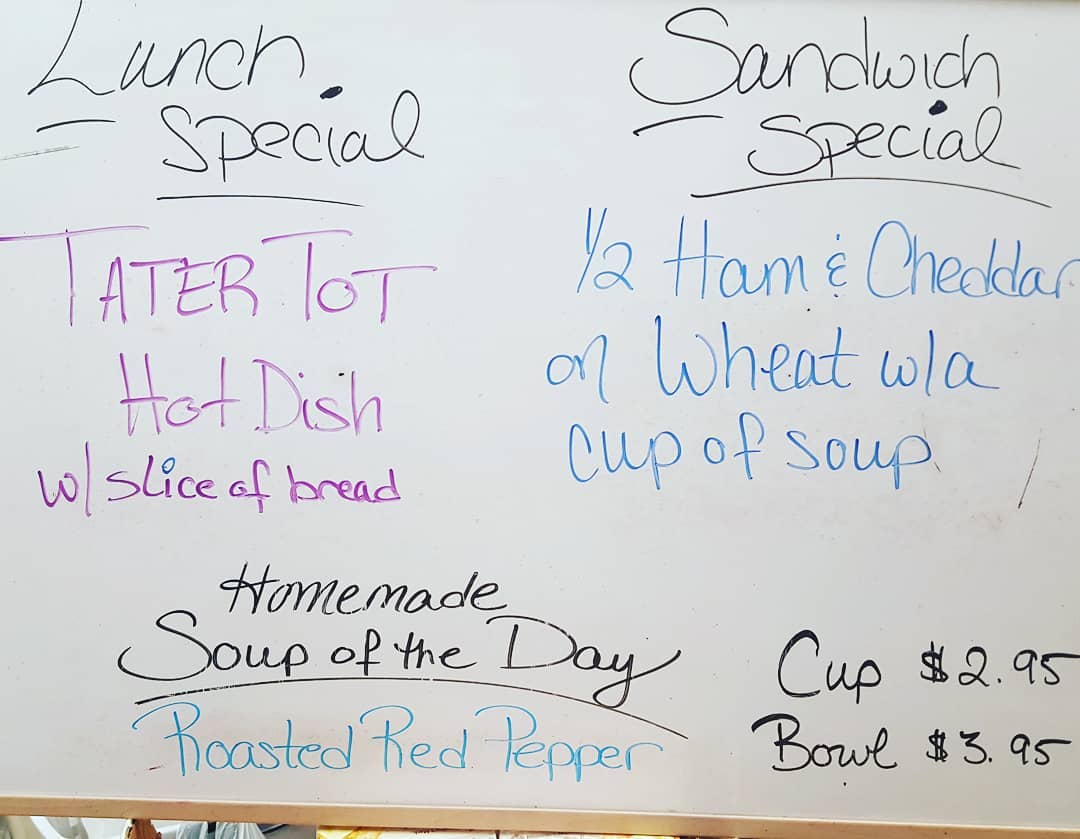 Lunch
Special
TATER TOT
Hot Dish
w/ slice of bread
Sandwich
Special
1/2 Ham & Cheddar
on Wheat w/a
cup of soup
Homemade
Soup of the Day
Roasted Red Pepper
Cup $2.95
Bowl $3.95